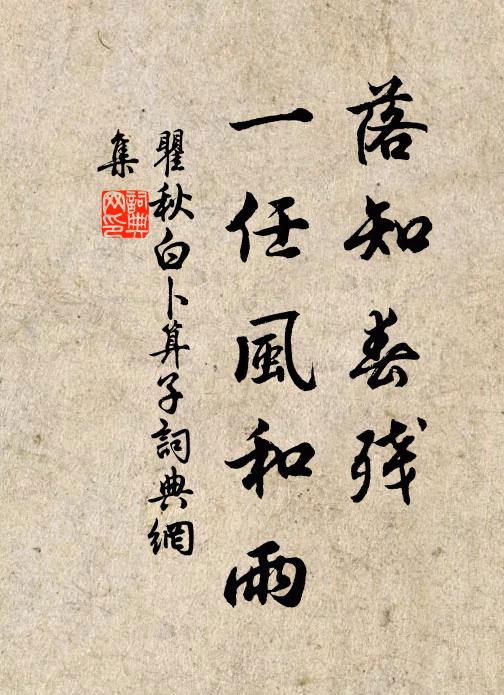 落知春残
一任風和雨
瞿秋白卜算子詞典網
集
詞典
网印